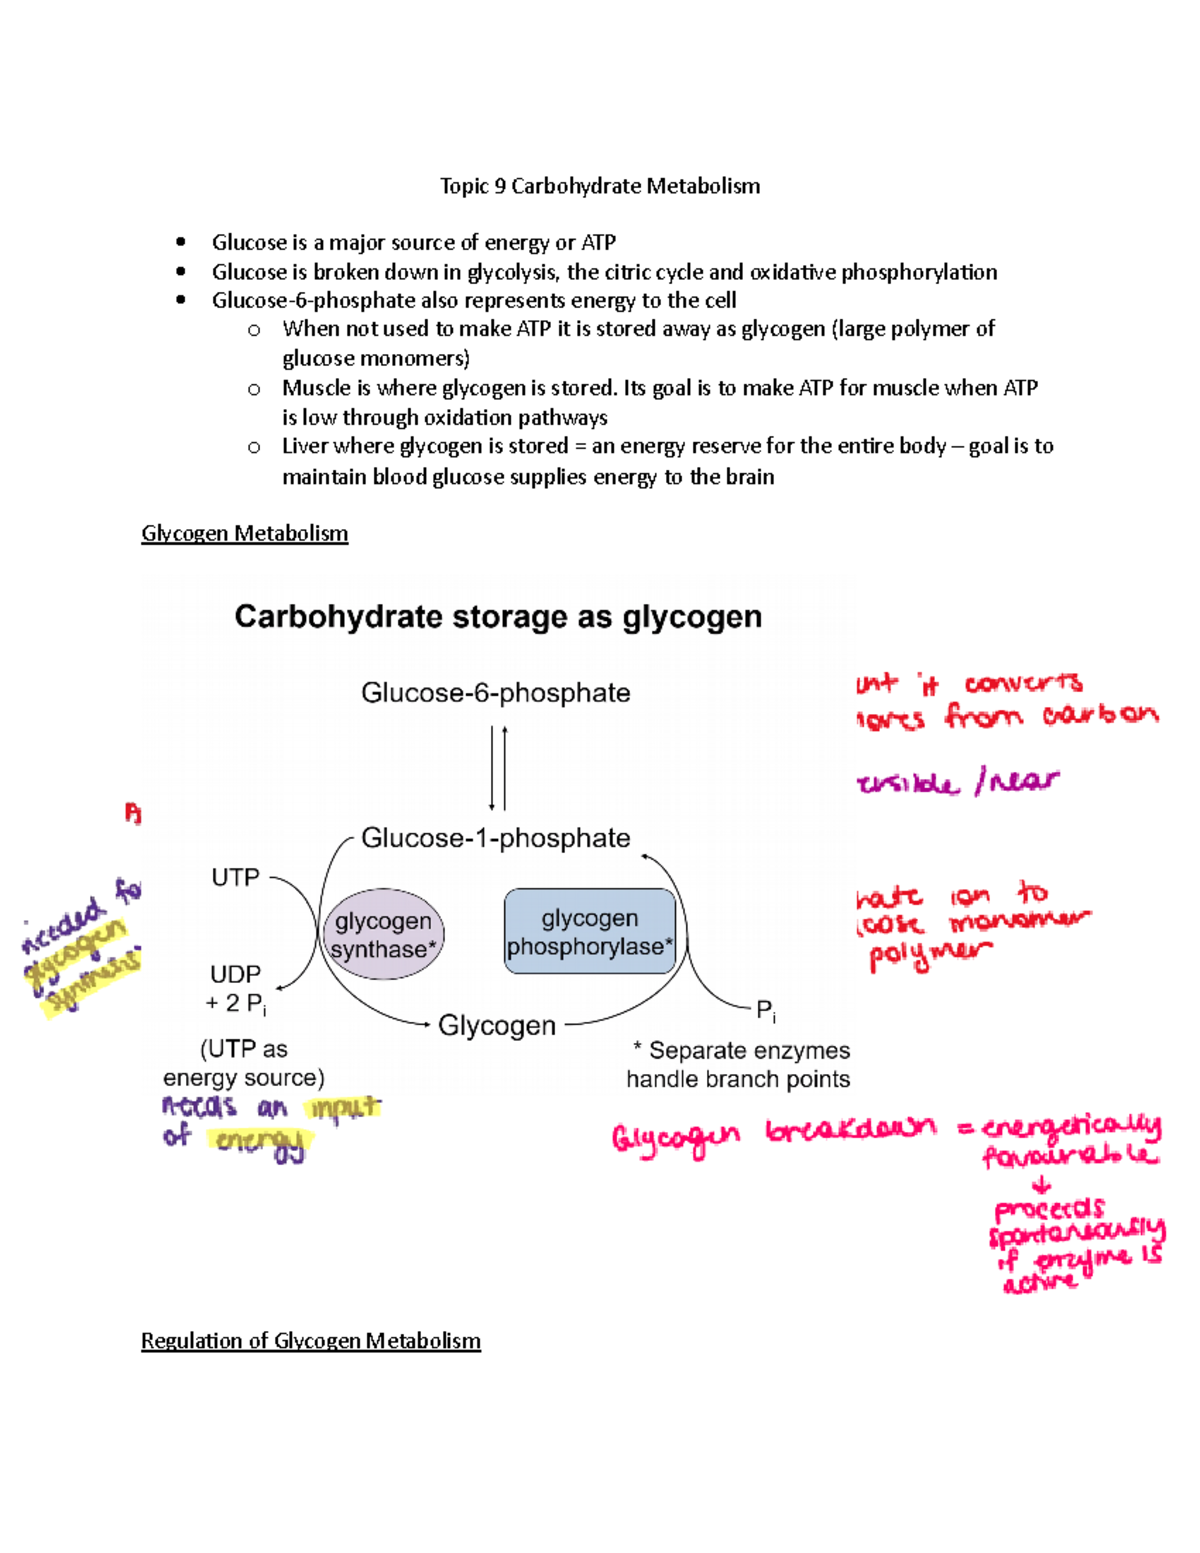 Topic 9 Carbohydrate Metabolism
• Glucose is a major source of energy or ATP
• Glucose is broken down in glycolysis, the citric cycle and oxidative phosphorylation
• Glucose-6-phosphate also represents energy to the cell
o When not used to make ATP it is stored away as glycogen (large polymer of
glucose monomers)
o Muscle is where glycogen is stored. Its goal is to make ATP for muscle when ATP
is low through oxidation pathways
o Liver where glycogen is stored = an energy reserve for the entire body – goal is to
maintain blood glucose supplies energy to the brain
Glycogen Metabolism
Carbohydrate storage as glycogen
Glucose-6-phosphate
it converts
from carbon
/near
Glucose-1-phosphate
UTP
needed fo
glycogen
synthesis
glycogen
synthase*
glycogen
phosphorylase*
ion to
monomer
polymer
UDP
+ 2 Pi
Glycogen
Pi
(UTP as
energy source)
* Separate enzymes
handle branch points
needs an input
of energy
Glycogen breakdown = energetically
favourable
↓
proceeds
spontaneously
if enzyme is
active
Regulation of Glycogen Metabolism